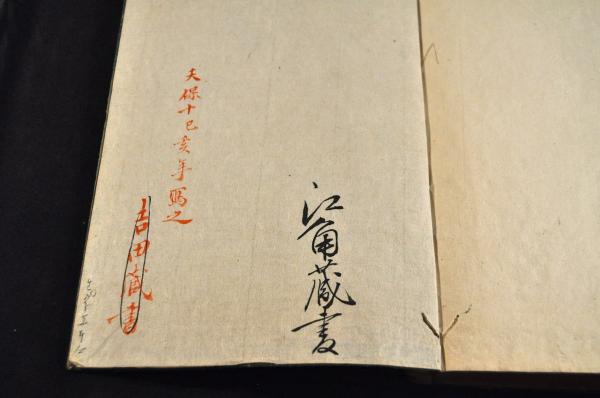 江角蔵書
天保十己亥年写之
吉田蔵書